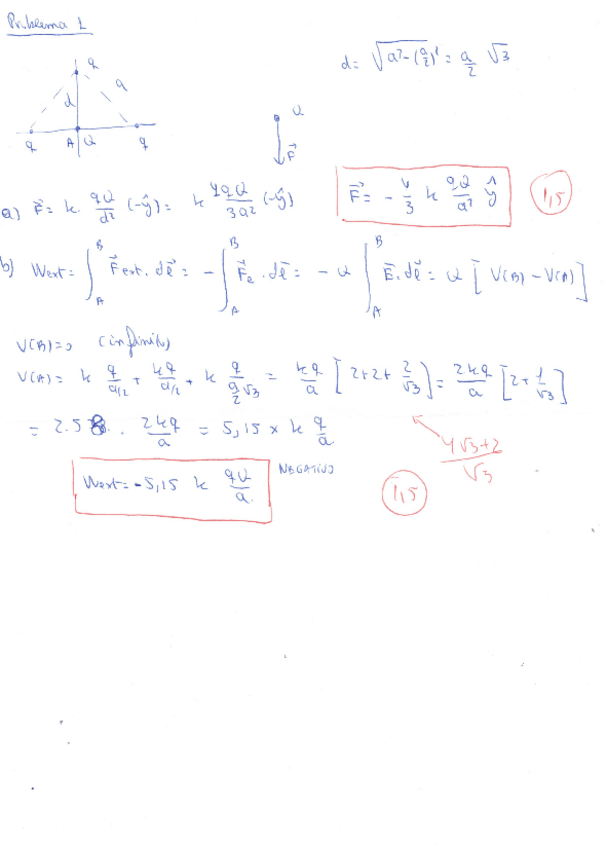 Problema 1
q
d = √(a² - (a/2)²) = a/2 √3
d
a
q A Q q
Q
F⃗
a) F⃗ = k · qQ/d² (-ŷ) = k 4qQ/3a² (-ŷ)
F⃗ = - 4/3 k qQ/a² ŷ
1,5
b) Wext = ∫_A^B F⃗ext · dl⃗ = - ∫_A^B F⃗e · dl⃗ = - Q ∫_A^B E⃗ · dl⃗ = Q [V(B) - V(A)]
V(B) = 0 (infinito)
V(A) = k q/(a/2) + kq/(a/2) + k q/(a/2 √3) = kq/a [2+2+ 2/√3] = 2kq/a [2 + 1/√3]
= 2.58 · 2kq/a = 5,15 × k q/a.
(4√3+2)/√3
Wext = -5,15 k qQ/a.
NEGATIVO
1,5